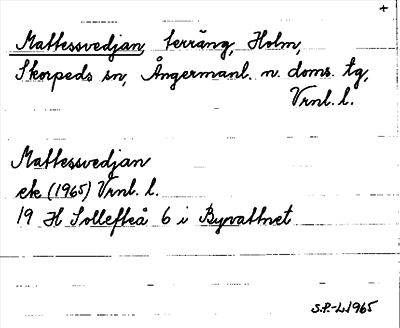 +
Mattessvedjan, terräng, Holm,
Skorpeds sn, Ångermanl. n. doms. tg,
Vrnl. l.
Mattessvedjan
ek (1965) Vrnl. l.
19 H Sollefteå 6 i Byvattnet
S.P.-L. 1965